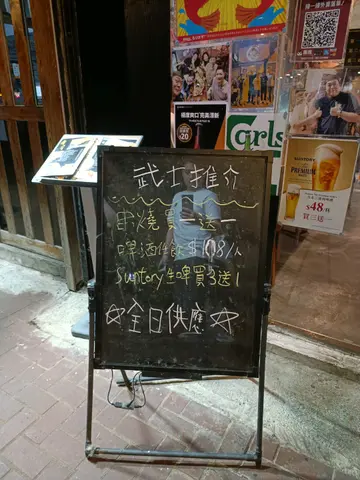 武士推介
串燒買一送一
啤酒任飲$108/人
Suntory生啤買3送1
☆全日供應☆
Carls
PREMIUM
$48
買三送一
$20